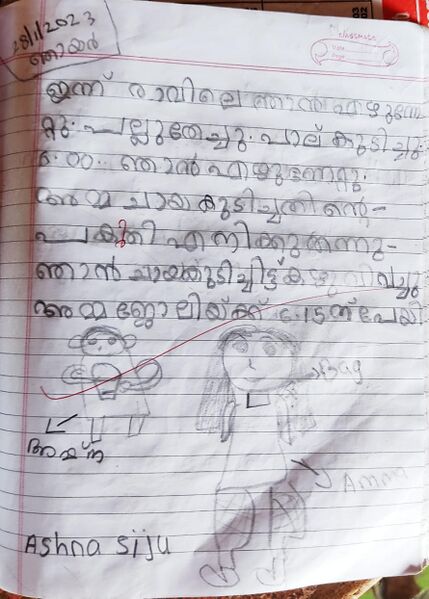 28/1/2023
ഞായർ
classmate
Date
Page
ഇന്ന് രാവിലെ ഞാൻ എഴുന്നേ
റ്റു. പല്ലുതേച്ചു. പാല് കുടിച്ചു.
6.00 ഞാൻ എഴുന്നേറ്റു.
അമ്മ ചായ കുടിച്ചതിന്റെ-
പകുതി എനിക്കു തന്നു-
ഞാൻ ചായകുടിച്ചിട്ട് കഴുകി വച്ചു
അമ്മ ജോലിയ്ക്ക് 6.15ന് പോയി
Bag
Amma
Ashna Siju